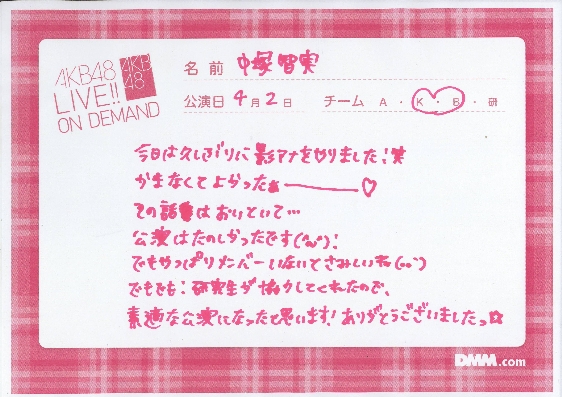 AKB48
LIVE!!
ON DEMAND
AKB
48
名前 中塚智実
公演日 4月2日 チーム A・K・B・研
今日は久しぶりに影アナをやりました!笑
かまなくてよかったぁ――♡
その話はおいといて…
公演はたのしかったです(^ω^)!
でもやっぱりメンバーいないとさみしいね(..)
でもでも!研究生が協力してくれたので、
素適な公演になったと思います!ありがとうございましたっ☆
DMM.com